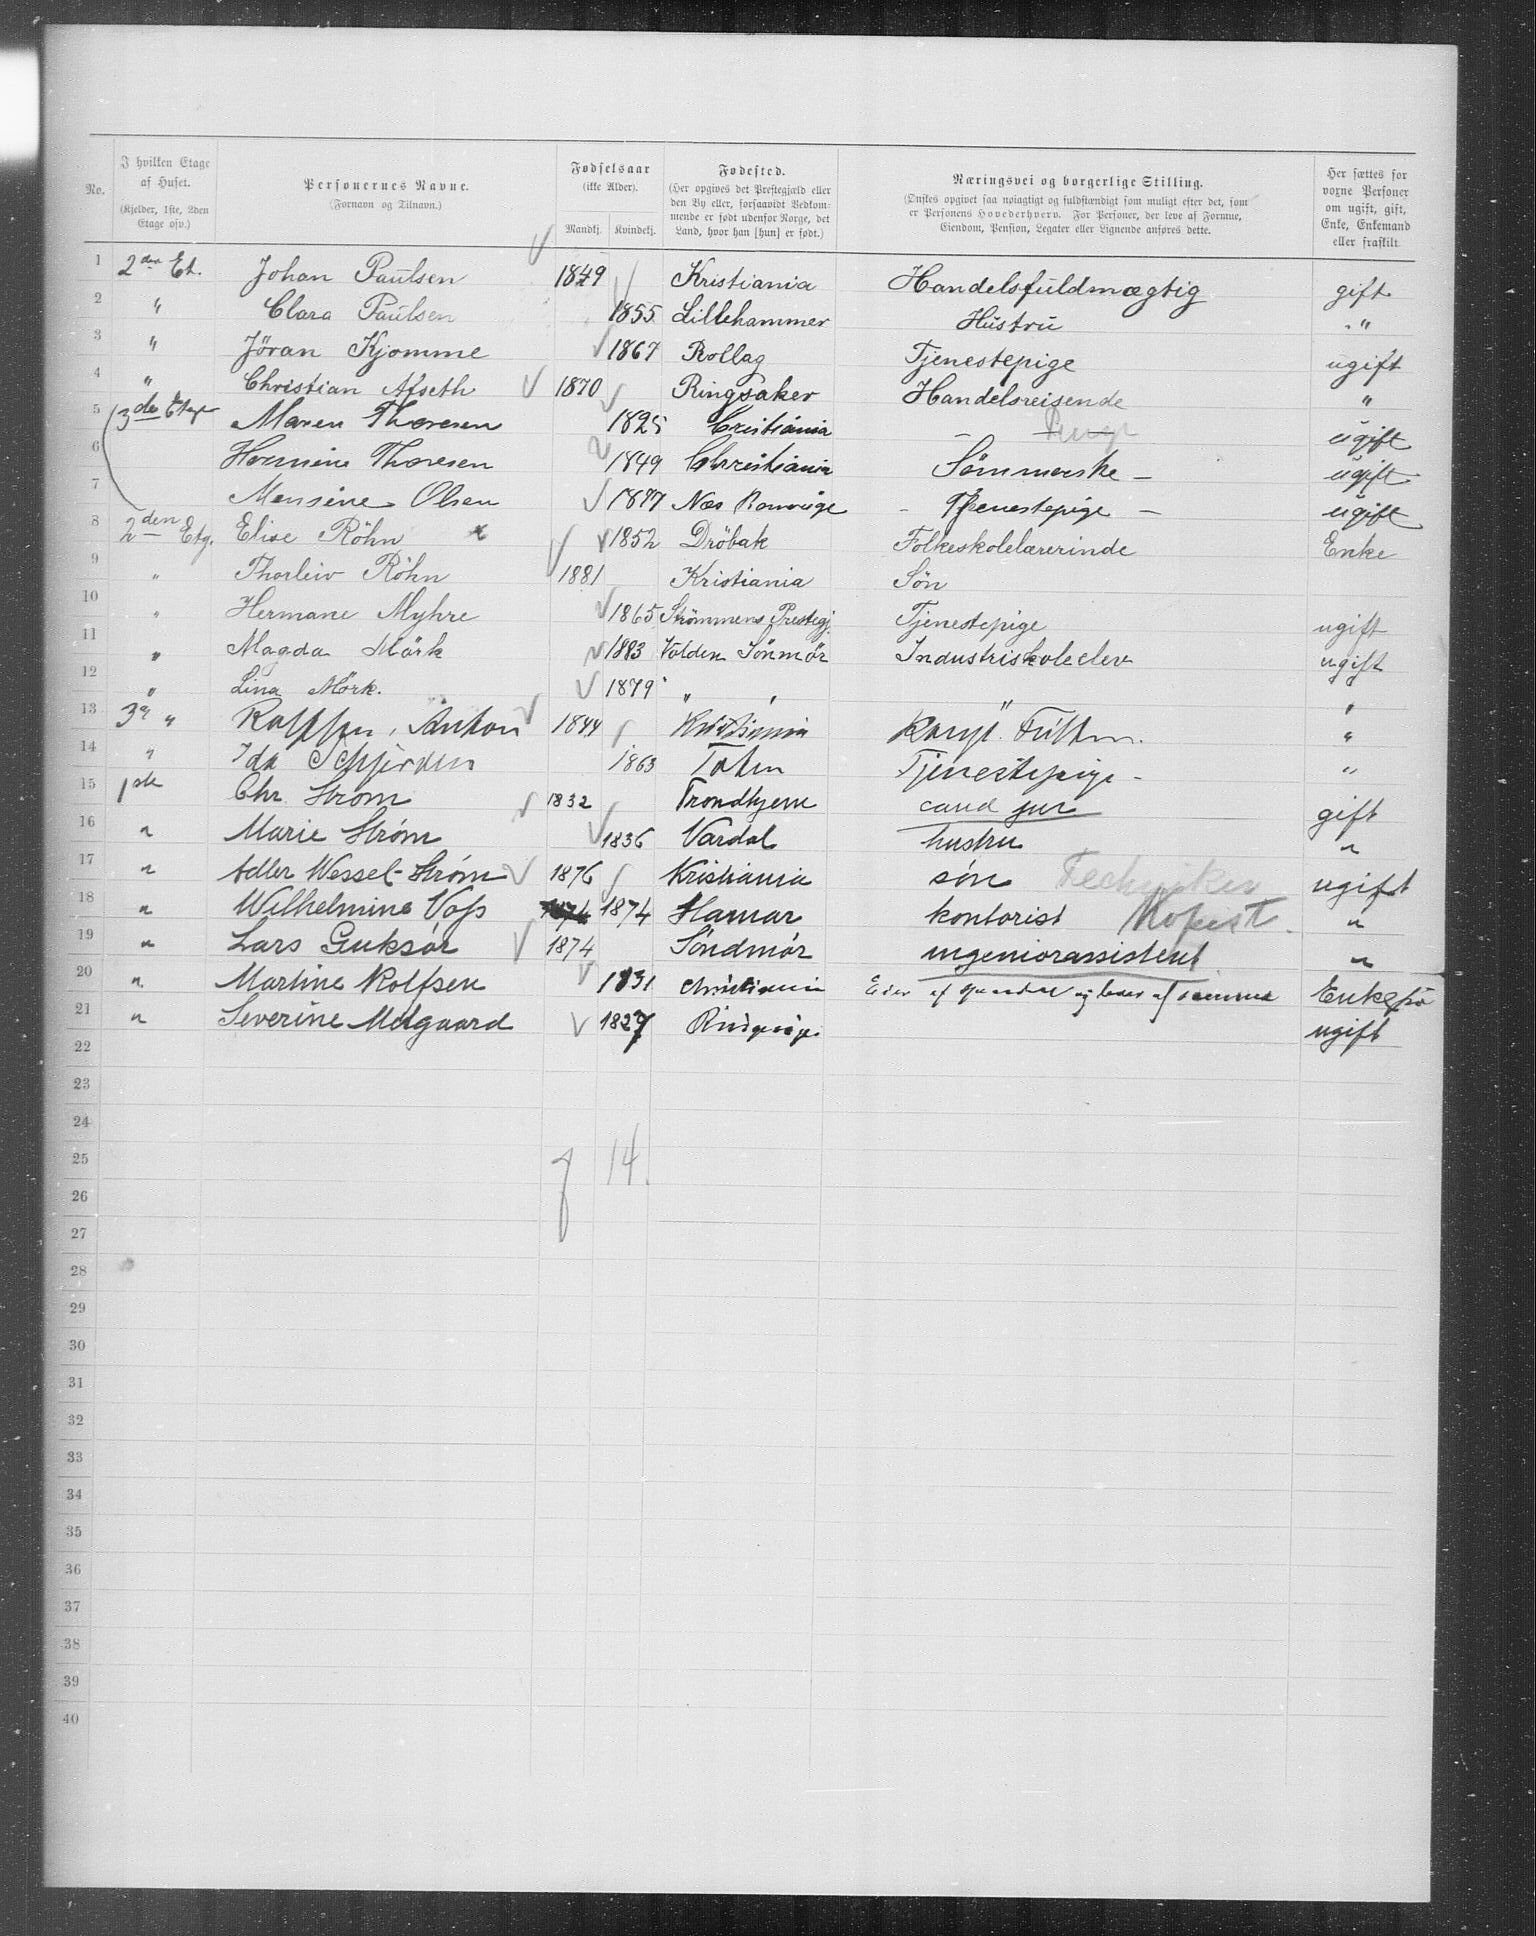 No.
I hvilken Etage af Huset. (Kjelder, 1ste, 2den Etage osv.)
Personernes Navne. (Fornavn og Tilnavn.)
Fødselsaar (ikke Alder). Mandkj. Kvindekj.
Fødested. (Her opgives det Prestegjæld eller den By eller, forsaavidt Vedkommende er født udenfor Norge, det Land, hvor han [hun] er født.)
Næringsvei og borgerlige Stilling. (Ønskes opgivet saa nøiagtigt og fuldstændigt som muligt efter det, som er Personens Hovederhverv. For Personer, der leve af Formue, Eiendom, Pension, Legater eller Lignende anføres dette.
Her sættes for voxne Personer om ugift, gift, Enke, Enkemand eller fraskilt.
1 2den Et. Johan Paulsen 1849 Kristiania Handelsfuldmægtig gift
2 " Clara Paulsen 1855 Lillehammer Hustru "
3 " Jöran Kjomme 1867 Rollag Tjenestepige ugift
4 " Christian Afseth 1870 Ringsaker Handelsreisende "
5 3die Etage Maren Thoresen 1825 Cristiania ugift
6 Hermine Thoresen 1849 Christiania Sömmerske ugift
7 Mensine Olsen 1877 Næs Romerige Tjenestepige ugift
8 2den Etg. Elise Röhn 1852 Dröbak Folkeskolelærerinde Enke
9 " Thorleiv Röhn 1881 Kristiania Sön
10 " Hermane Myhre 1865 Strömmens Prestegj. Tjenestepige ugift
11 " Magda Mörk 1883 Volden Sönmör Industriskoleelev ugift
12 " Lina Mörk. 1879 " " " "
13 3die " Rolfsen, Anton 1844 Kristiania "
14 " Ida 1863 Toten Tjenestepige "
15 1ste Chr. Strøm 1832 Trondhjem cand jur gift
16 " Marie Strøm 1836 Vardal hustru "
17 " Adler Wessel-Strøm 1876 Kristiania søn Techniker ugift
18 " Wilhelmine Voss 1874 1874 Hamar kontorist Kopist. "
19 " Lars Guksør 1874 Söndmör ingeniørassistent "
20 " Martine Rolfsen 1831 Christiania Eier af gaarden og lever af samme Enkefru
21 " Severine Melgaard 1827 ugift
22
23
24
25
7 14.
26
27
28
29
30
31
32
33
34
35
36
37
38
39
40